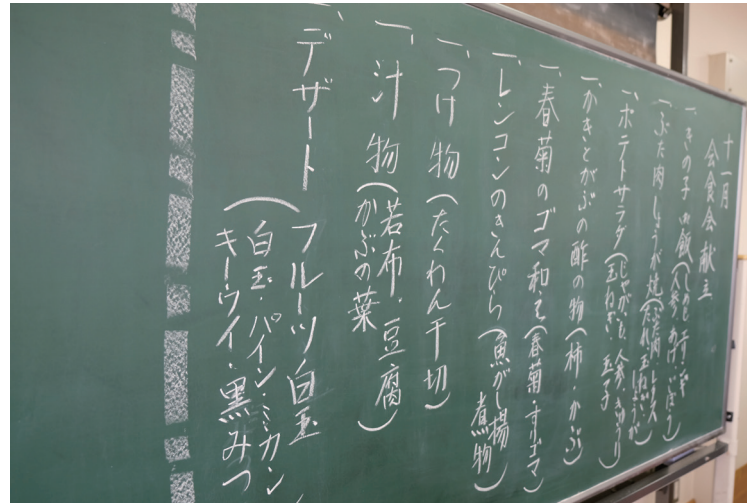 十一月
会食会献立
一、きのこ御飯(しめじ
人参・あげ・
一、ぶた肉しょうが焼(ぶた肉・レタス
たれ玉ねぎ
一、ポテトサラダ(じゃがいも・人参・きゅうり
玉ねぎ・玉子
一、かきとかぶの酢の物(柿・かぶ)
一、春菊のゴマ和え(春菊・すりゴマ)
一、レンコンのきんぴら(魚がし揚
煮物)
一、つけ物(たくわん干切)
一、汁物(若布・豆腐)
かぶの葉
一、デザート(フルーツ白玉
白玉・パイン・ミカン
キーウイ・黒みつ